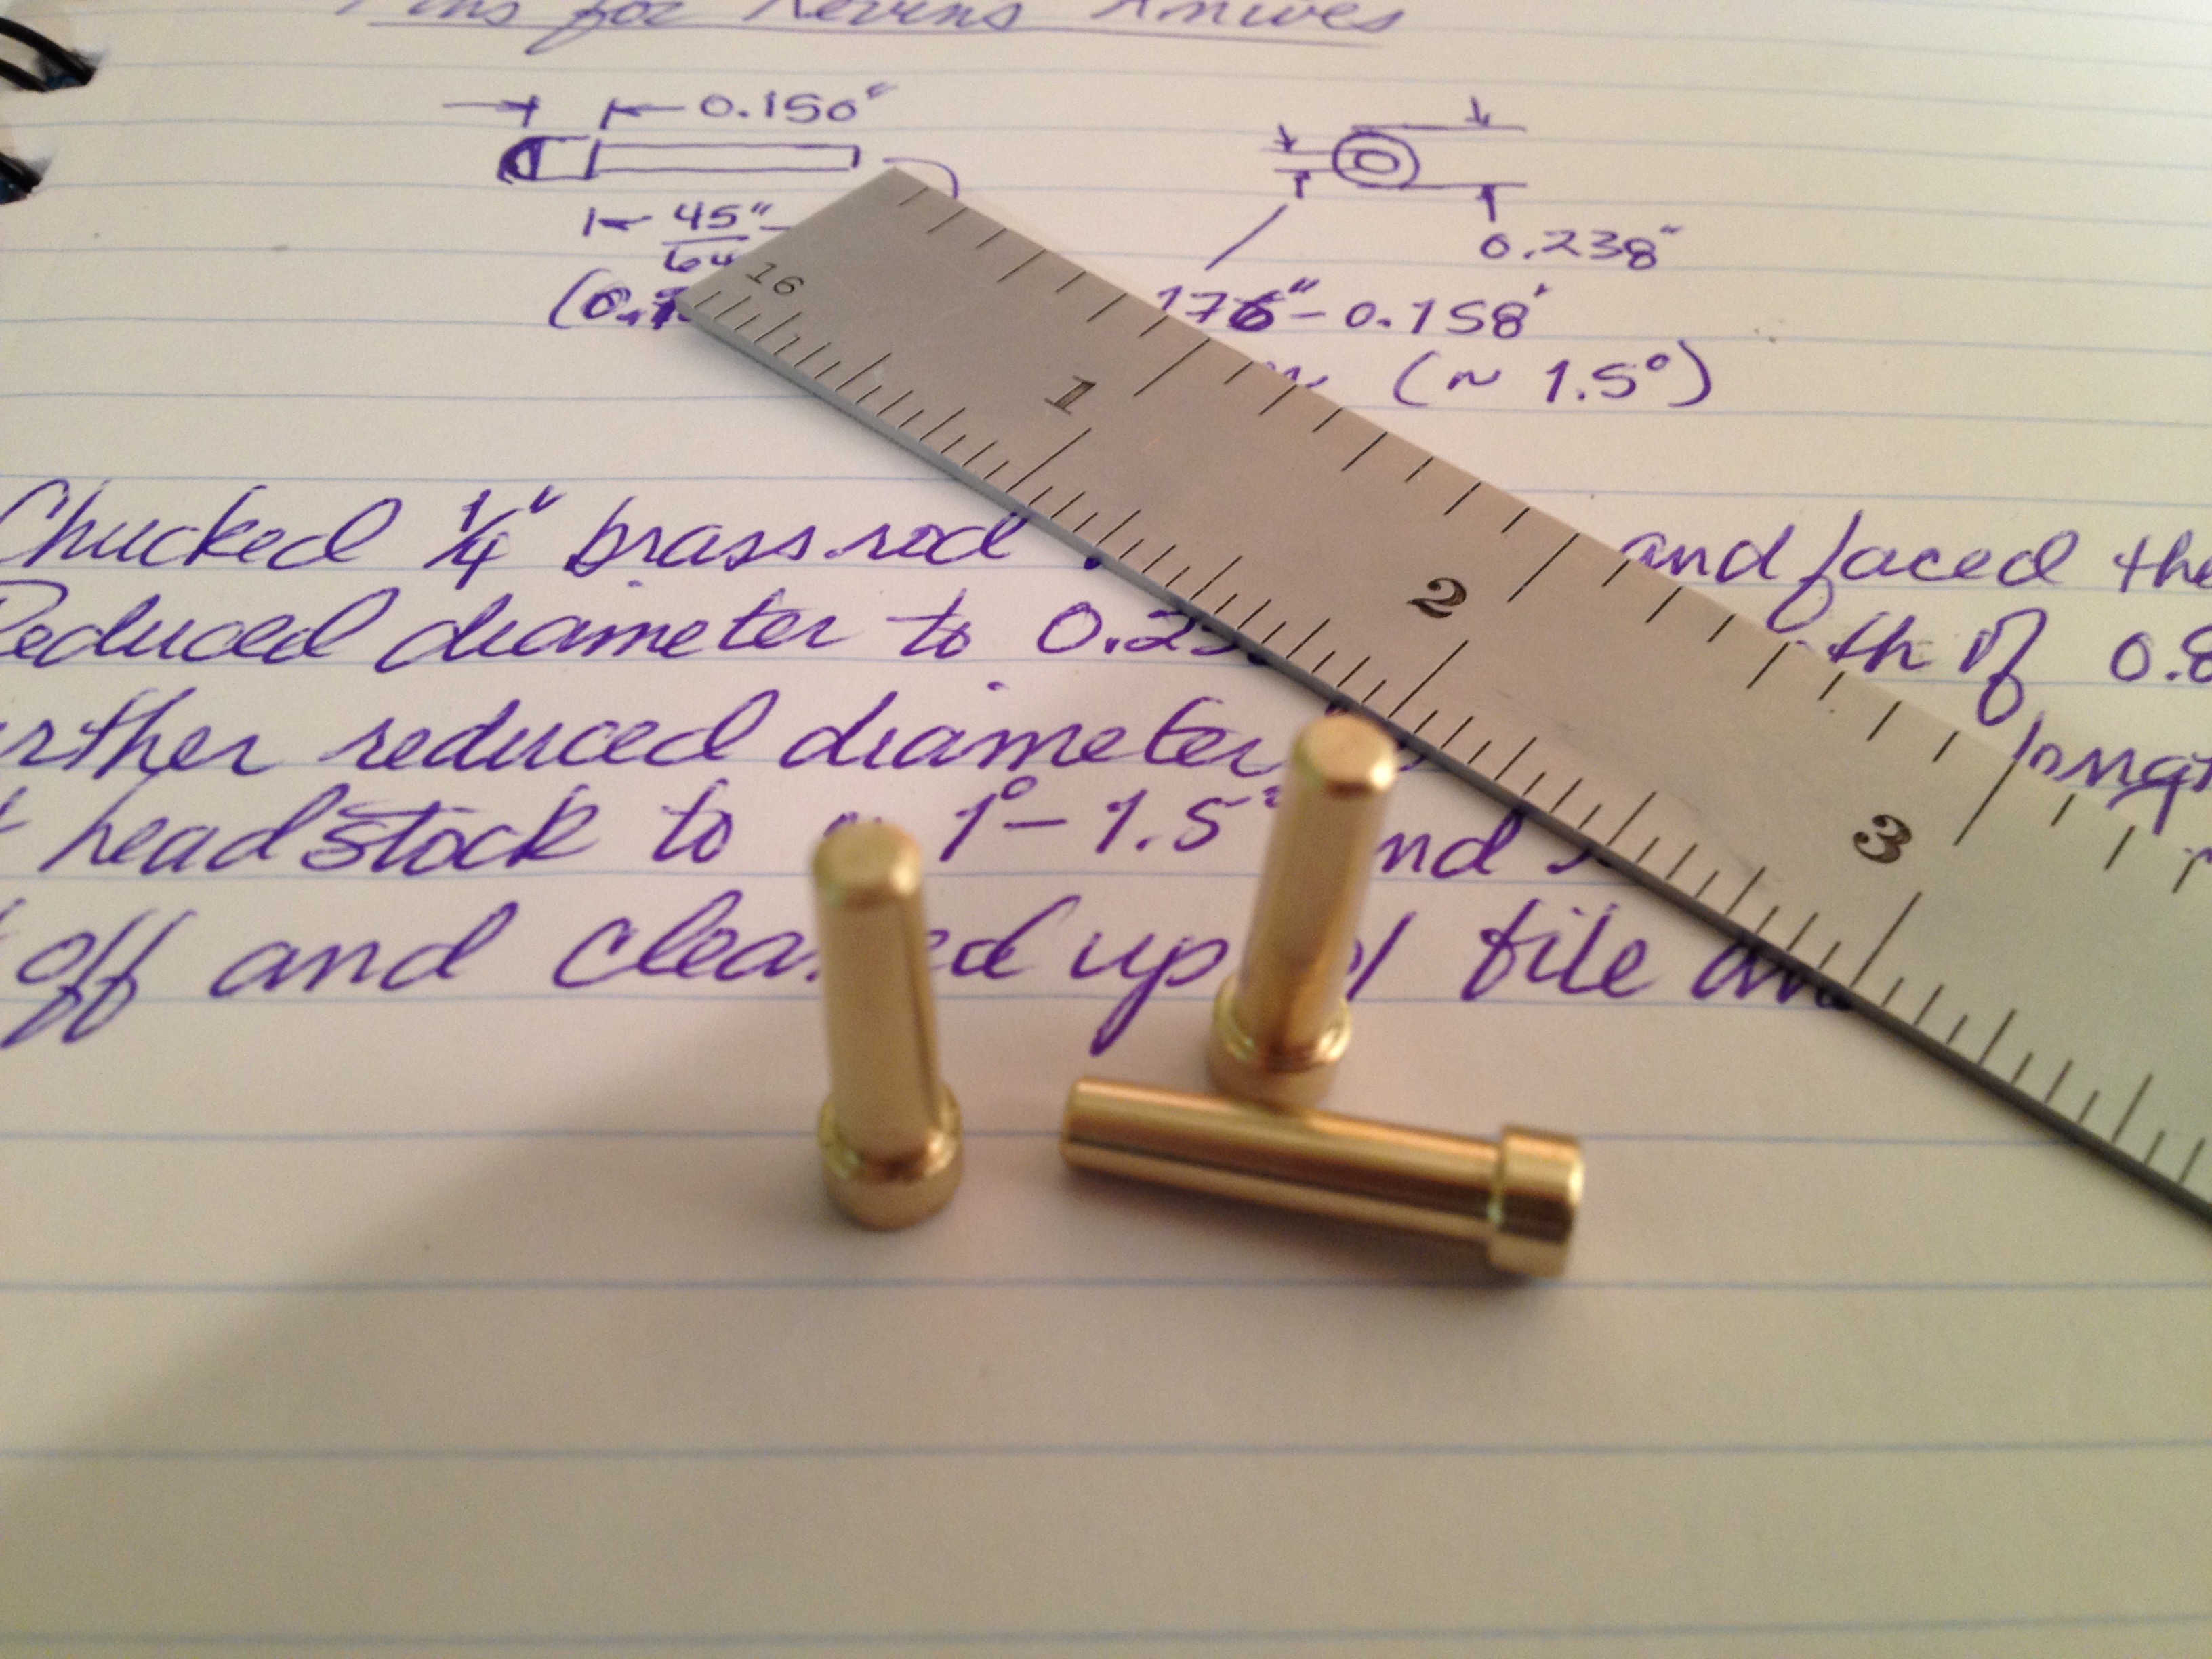 Pins for Kevins Knives
0.150"
45"
64
0.238"
176" - 0.158"
(~ 1.5°)
16
1
2
3
Chucked 1/4" brass rod and faced the
Reduced diameter to 0.23 of 0.8
reduced diameter
headstock to 1° - 1.5°
off and up file